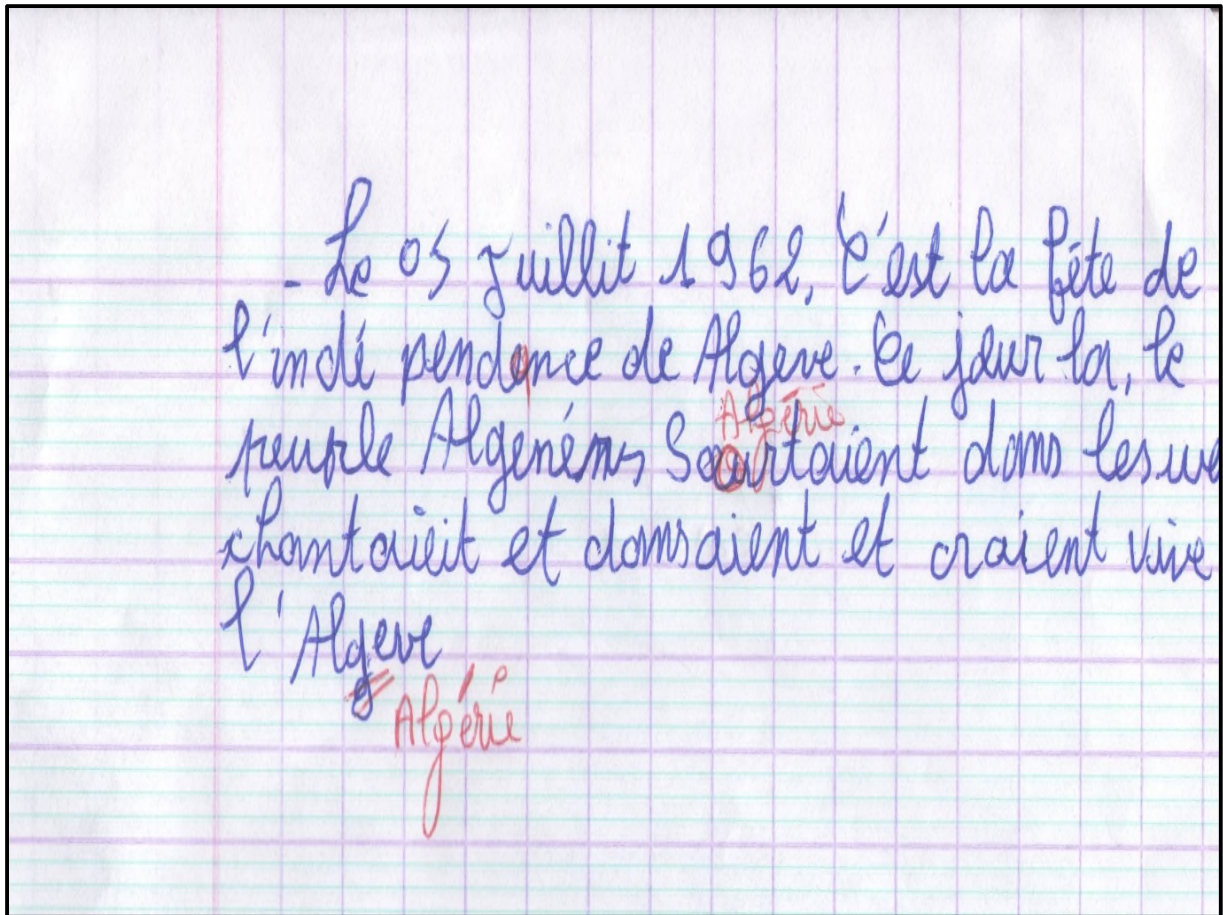 - Le 05 Juillit 1962, C'est la fête de
l'indé pendence de Algeve. Ce jour la, le
a
Algérie
peuple Algenéns Sourtaient dans les
chantaieit et dansaient et craient vive
l'Algeve
Algérie